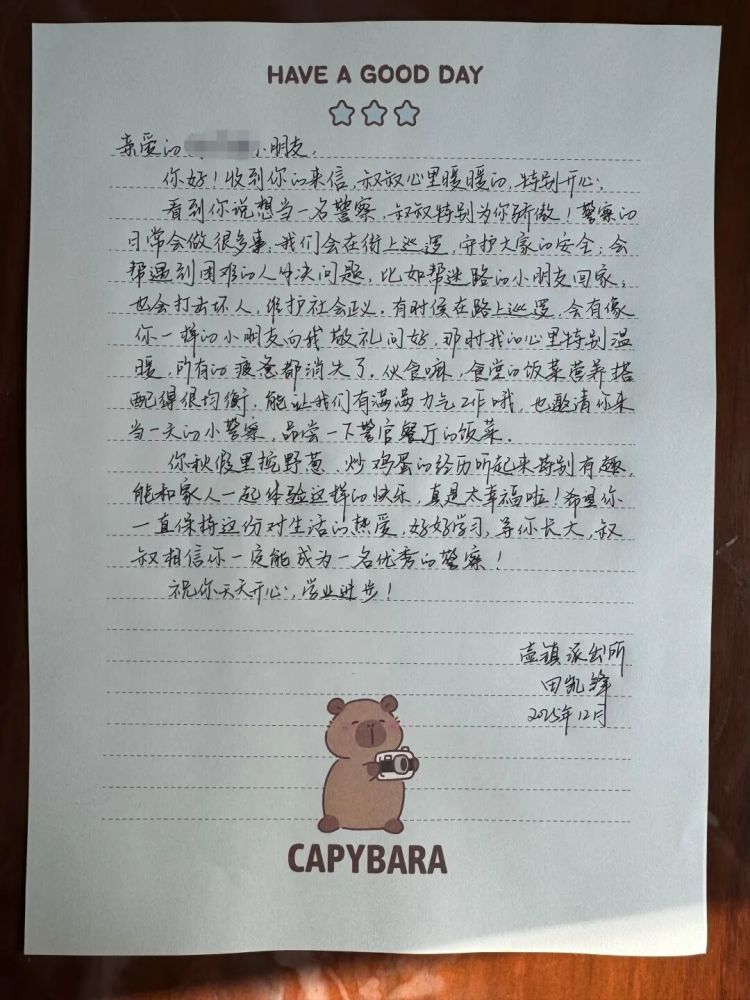 HAVE A GOOD DAY
亲爱的 小朋友.
你好！收到你的来信，叔叔心里暖暖的，特别开心；
看到你说想当一名警察，叔叔特别为你骄傲！警察的
日常会做很多事，我们会在街上巡逻，守护大家的安全；会
帮遇到困难的人解决问题，比如帮迷路的小朋友回家；
也会打击坏人，维护社会正义．有时候在路上巡逻，会有像
你一样的小朋友向我敬礼问好，那时我的心里特别温
暖，所有的疲惫都消失了．伙食嘛，食堂的饭菜营养搭
配得很均衡，能让我们有满满力气工作哦，也邀请你来
当一天的小警察，品尝一下警官餐厅的饭菜．
你秋假里挖野葱、炒鸡蛋的经历听起来特别有趣，
能和家人一起体验这样的快乐，真是太幸福啦！希望你
一直保持这份对生活的热爱，好好学习，等你长大，叔
叔相信你一定能成为一名优秀的警察！
祝你天天开心，学业进步！
镇派出所
田凯锋
2025年12月
CAPYBARA